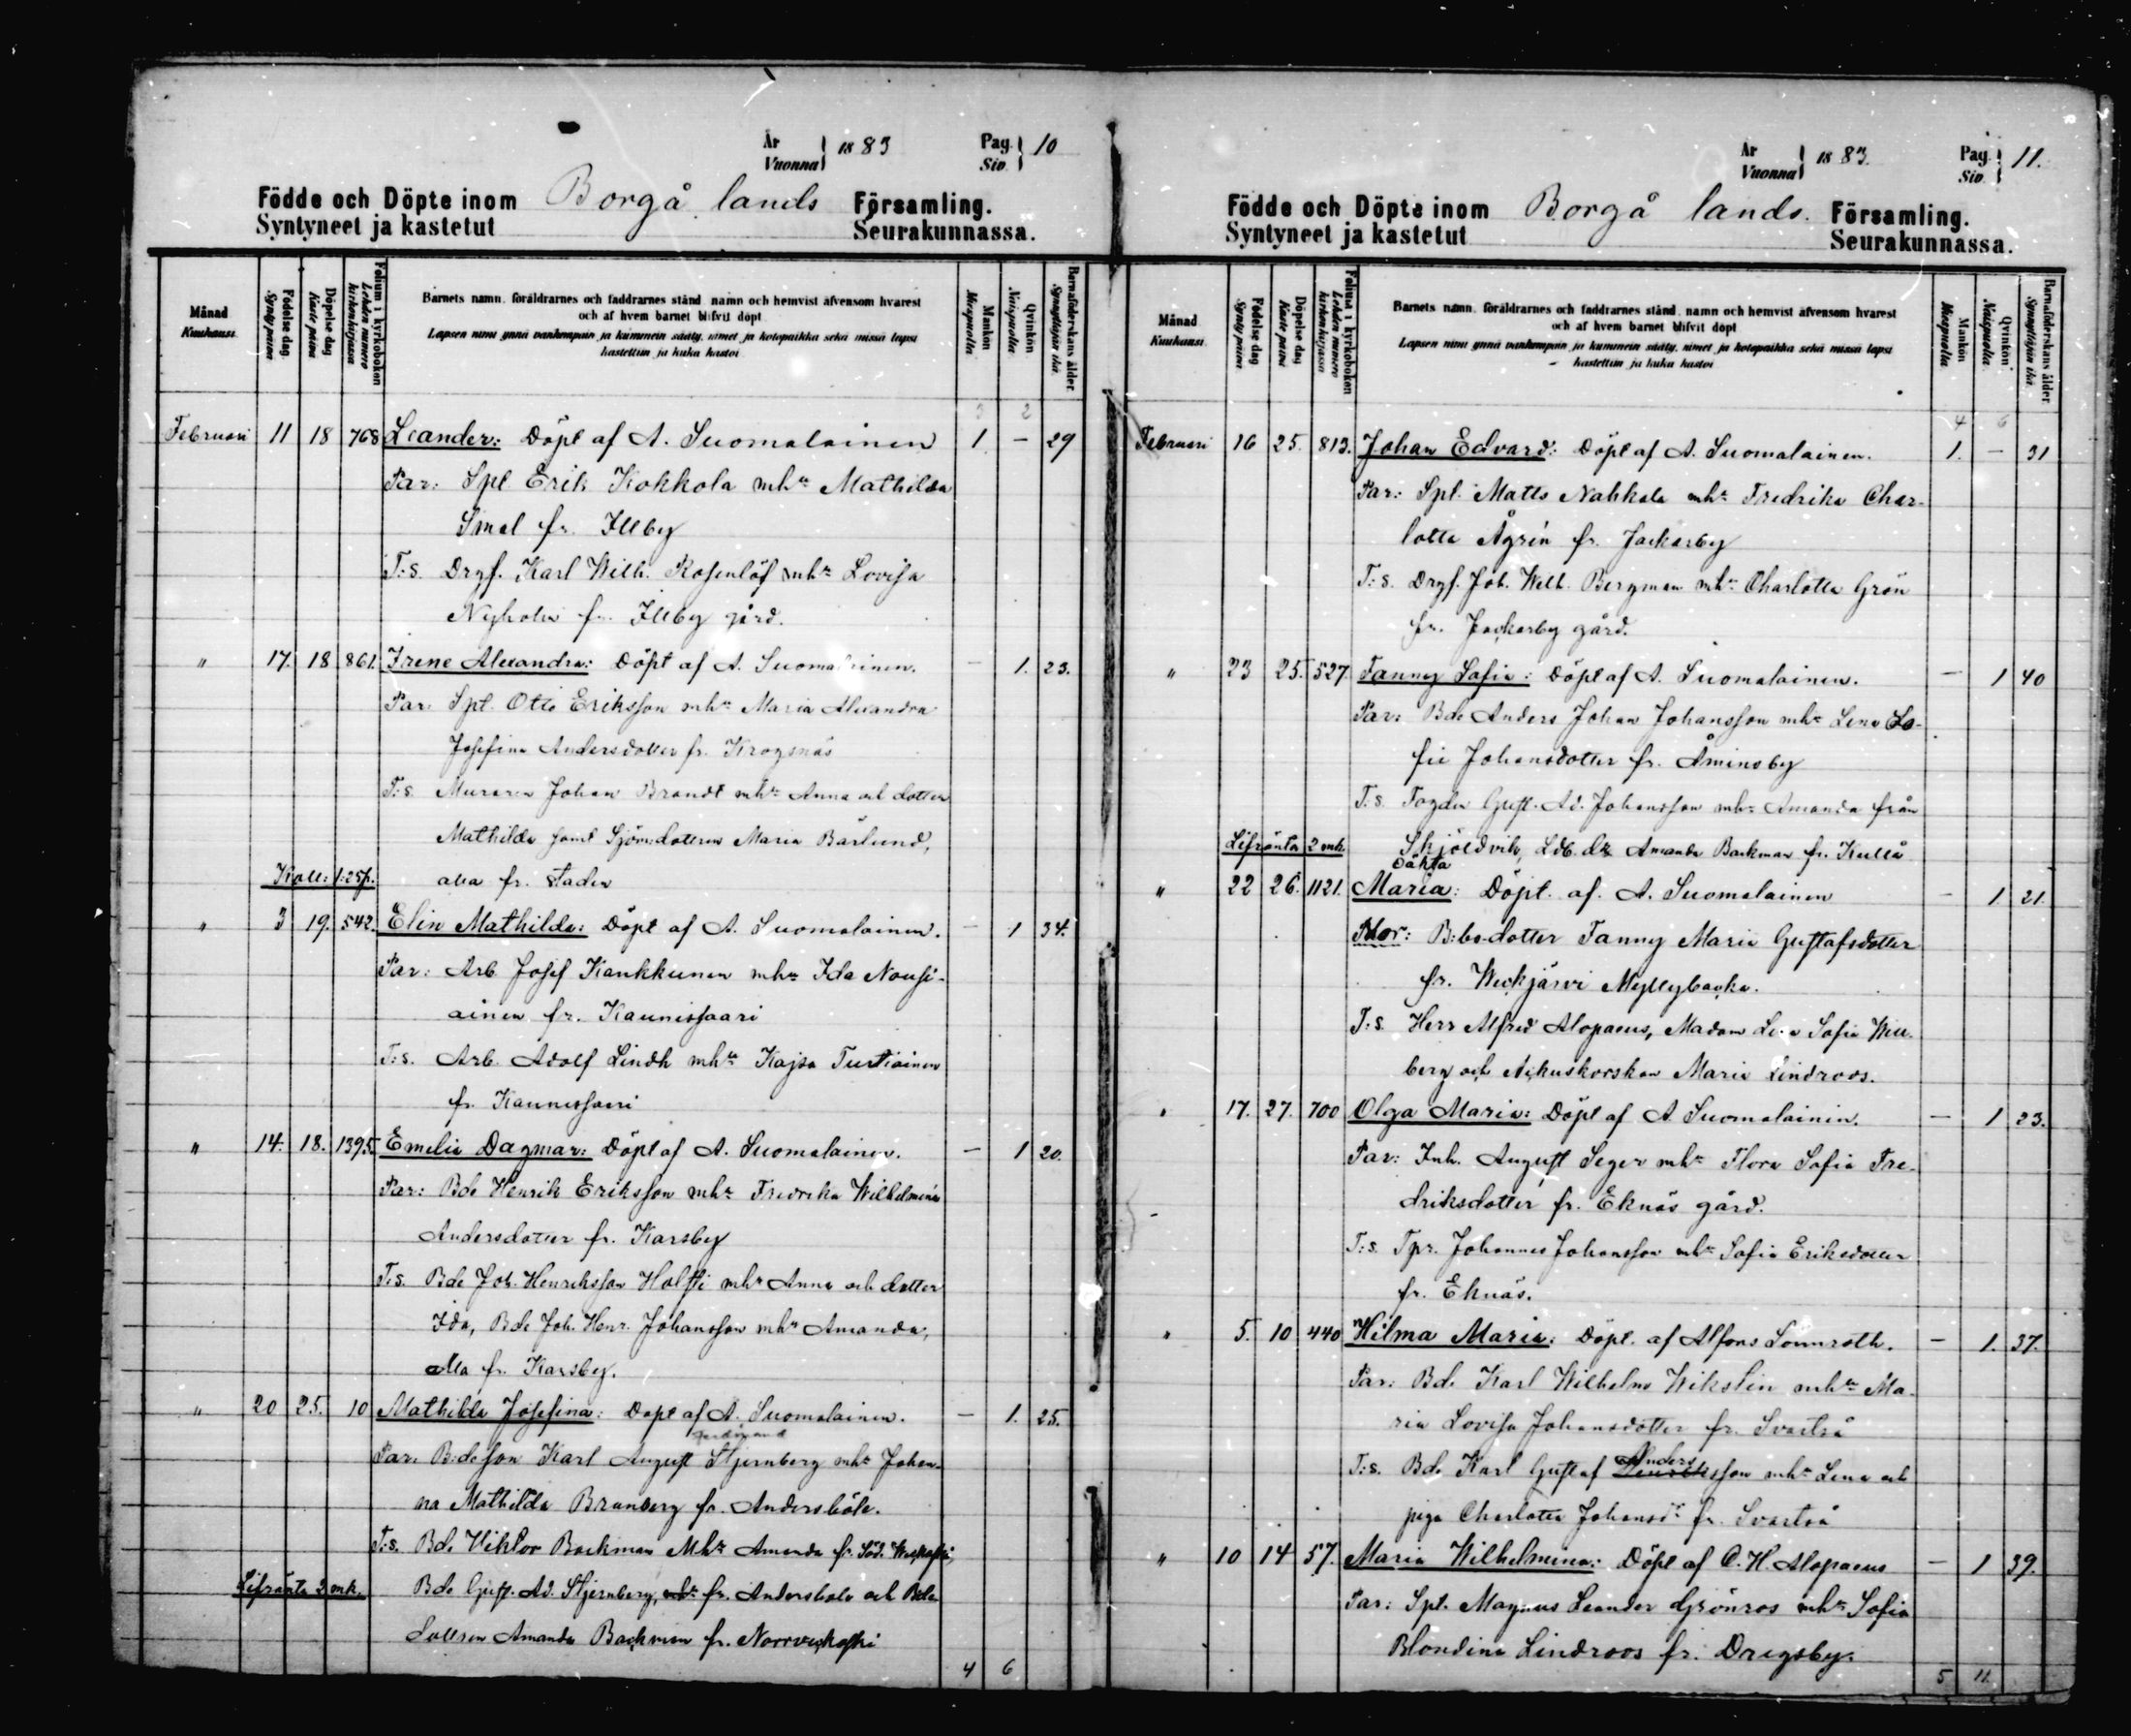 År
Vuonna 1883
Pag.
Siv. 10
Födde och Döpte inom Borgå lands Församling.
Syntyneet ja kastetut Seurakunnassa.
Månad
Kuukausi.
Födelse dag
Synty päivä
Döpelse dag
Kaste päivä
Folium i kyrkoboken
Lehden numero kirkonkirjassa
Barnets namn, föräldrarnes och faddrarnes stånd, namn och hemvist äfvensom hvarest
och af hvem barnet blifvit döpt.
Lapsen nimi ynnä vanhempain ja kummein sääty, nimet ja kotopaikka sekä missä lapsi
kastettiin ja kuka kastoi
Mankön
Miespuolta
Qvinkön
Naispuolta
Barnaföderskans ålder.
Synnyttäjän ikä.
3 2
Februari 11 18 768 Leander: Döpt af A. Suomalainen 1 - 29
Par: Spl. Erik Kokkola mhu Mathilda
Smal fr. Illby
T:s. Drgf. Karl Wilh. Rosenlöf mhu Lovisa
Nyholm fr. Illby gård.
" 17. 18 861. Irene Alexandra: Döpt af A. Suomalainen. - 1. 23.
Par: Spl. Otto Eriksson mhu Maria Alexandra
Josefina Andersdotter fr. Krogsnäs
T:s. Muraren Johan Brandt mhu Anna och dotter
Mathilda samt Sjöm:dottren Maria Bärlund,
Koll: 1:25p. alla fr. staden
" 3 19. 542. Elin Mathilda: Döpt af A. Suomalainen. - 1 34.
Par: Arb. Josef Kankkunen mhu Ida Nousi-
ainen fr. Kaunissaari
T:s. Arb. Adolf Lindh mhu Kajsa Turtiainen
fr. Kaunissaari
" 14. 18. 1395. Emelia Dagmar: Döpt af A. Suomalainen. - 1 20.
Par: Bde Henrik Eriksson mhu Fredrika Wilhelmina
Andersdotter fr. Karsby
T:s. Bde Joh. Henriksson Holssi mhu Anna och dotter
Ida, Bde Joh. Henr. Johansson mhu Amanda,
alla fr. Karsby.
" 20 25. 10 Mathilda Josefina: Döpt af A. Suomalainen. - 1. 25.
Ferdinand
Par: B:deson Karl August Stjernberg mhu Johan-
na Mathilda Brunberg fr. Andersböle.
T:s. Bde Viktor Backman Mhu Amanda fr. Söd.
Lifränta 2 mk. Bde Gust. Ad. Stjernberg, mhu fr. Andersböle och Bde
dottren Amanda Backman fr. Norrveckoski
4 6
År
Vuonna 1883.
Pag.
Siv. 11.
Födde och Döpte inom Borgå lands. Församling.
Syntyneet ja kastetut Seurakunnassa.
Månad
Kuukausi.
Födelse dag
Synty päivä
Döpelse dag
Kaste päivä
Folium i kyrkoboken
Lehden numero kirkonkirjassa
Barnets namn, föräldrarnes och faddrarnes stånd, namn och hemvist äfvensom hvarest
och af hvem barnet blifvit döpt
Lapsen nimi ynnä vanhempain ja kummein sääty, nimet ja kotopaikka sekä missä lapsi
kastettiin ja kuka kastoi
Mankön
Miespuolta
Qvinkön
Naispuolta
Barnaföderskans ålder.
Synnyttäjän ikä.
4 6
Februari 16 25. 813. Johan Edvard: Döpt af A. Suomalainen. 1. - 31
Par: Spl. Matts Nahkala mhu Fredrika Char-
lotta Ågrén fr. Jackarby
T:s. Drgf. Joh. Wilh. Bergman mhu Charlotta Grön
fr. Jackarby gård.
" 23 25. 527. Fanny Sofia: Döpt af A. Suomalainen. - 1 40
Par: Bde Anders Johan Johansson mhu Lena So-
fia Johansdotter fr. Åminsby
T:s. Fogden Gust. Ad. Johansson mhu Amanda från
Lifränta 2 mk. Skjöldvik, Ldb. dr Amanda Backman fr. Kullå
oäkta
" 22 26. 1121. Maria: Döpt. af. A. Suomalainen - 1 21.
Mor: B:bo.dotter Fanny Maria Gustafsdotter
fr. Weckjärvi Myllybacka.
T:s. Herr Alfred Alopaeus, Madam Sofia Will-
berg och Ackuskorskan Maria Lindroos.
" 17. 27. 700 Olga Maria: Döpt af A Suomalainen. - 1 23.
Par: Inh. August Seger mhu Flora Sofia Fre-
driksdotter fr. Eknäs gård.
T:s. Tpr. Johannes Johansson mhu Sofia Eriksdotter
fr. Eknäs.
" 5. 10 440 Hilma Maria: Döpt. af Alfons Lönnroth. - 1. 37.
Par: Bde Karl Wilhelm Wikslin mhu Ma-
ria Lovisa Johansdotter fr. Svartså
Anders
T:s. Bde Karl Gustaf Henriksson mhu Lena och
piga Charlotta Johansdr fr. Svartså
" 10 14 57. Maria Wilhelmina: Döpt af C. H. Alopaeus - 1 39.
Par: Spl. Magnus Leander Grönros mhu Sofia
Blondina Lindroos fr. Dragsby.
5 11.